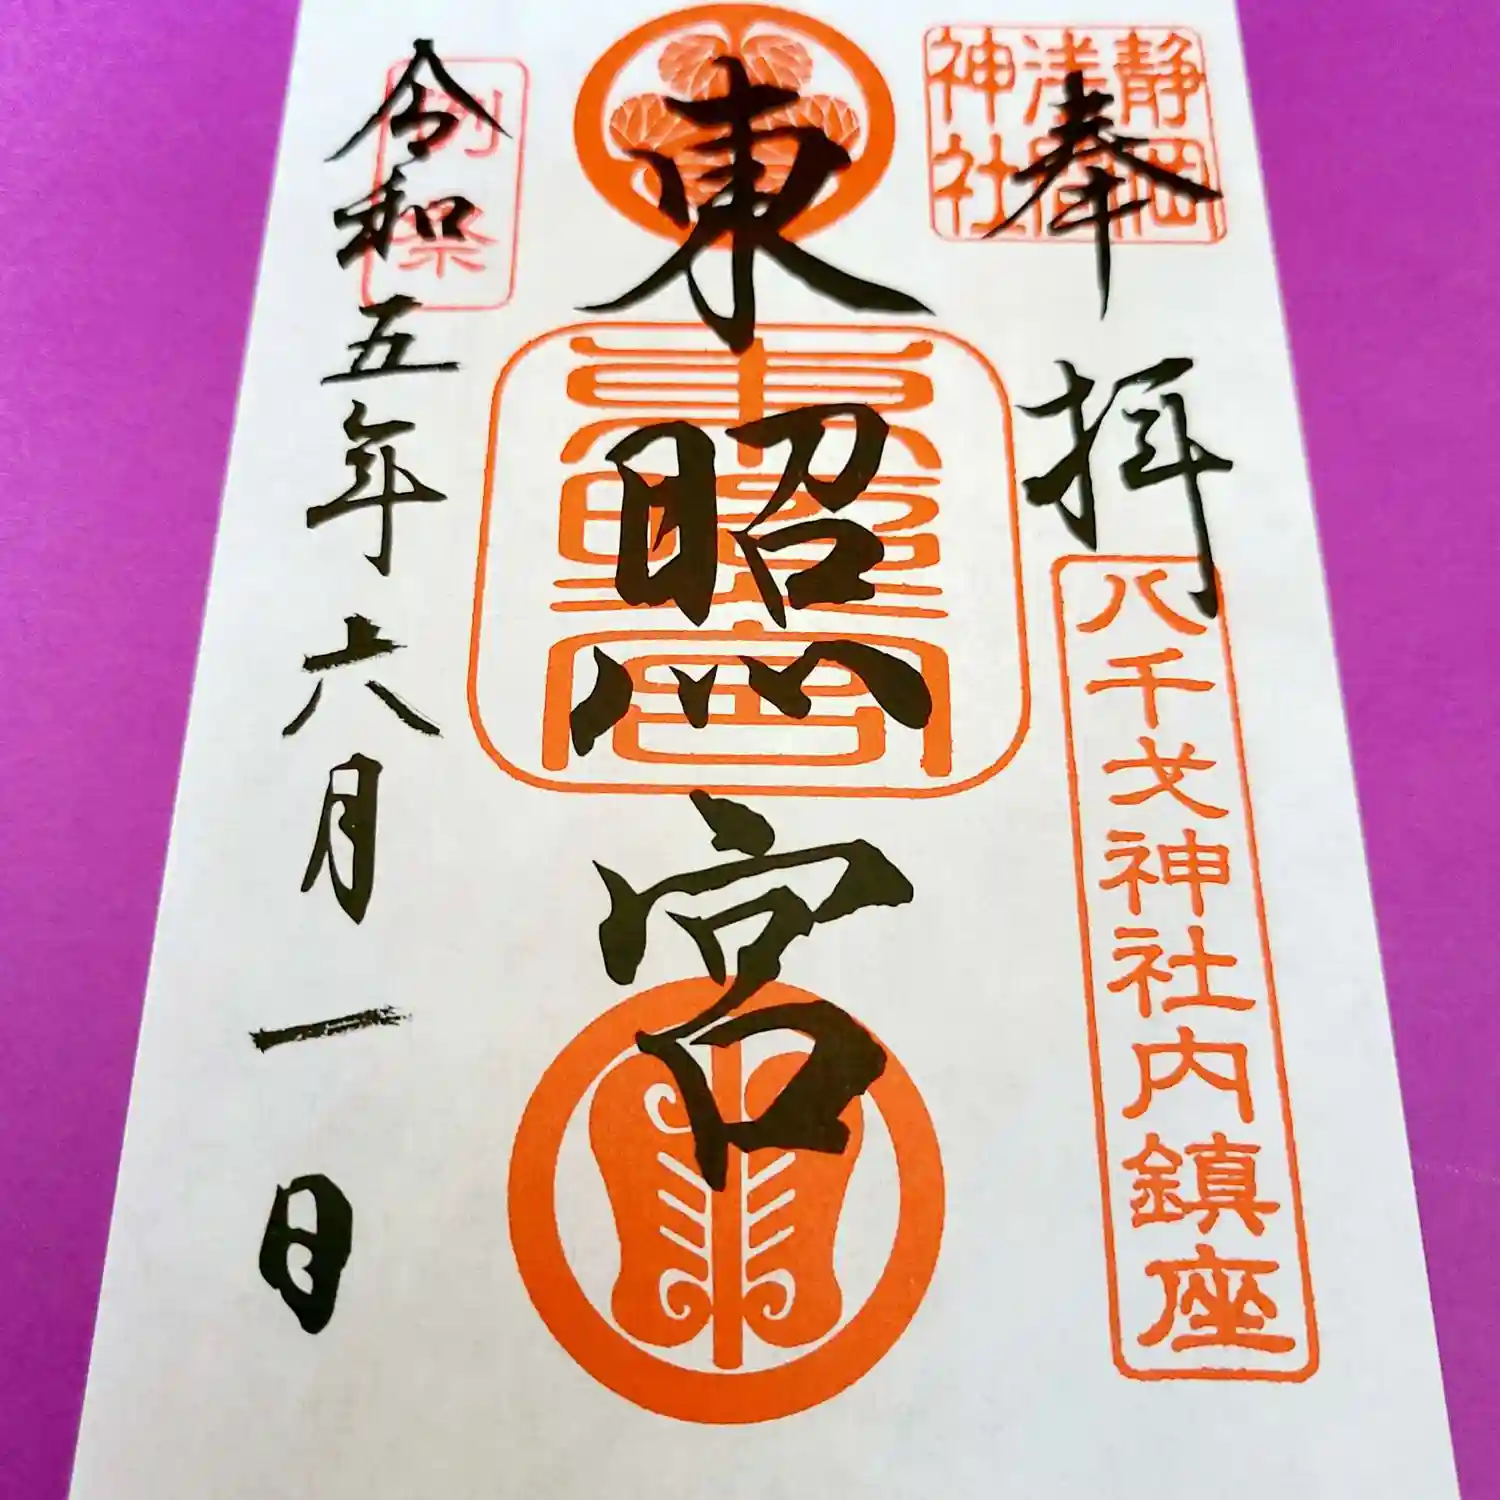 奉拝
静岡
浅間
神社
八千戈神社内鎮座
東照宮
東照宮
令和五年六月一日
例祭